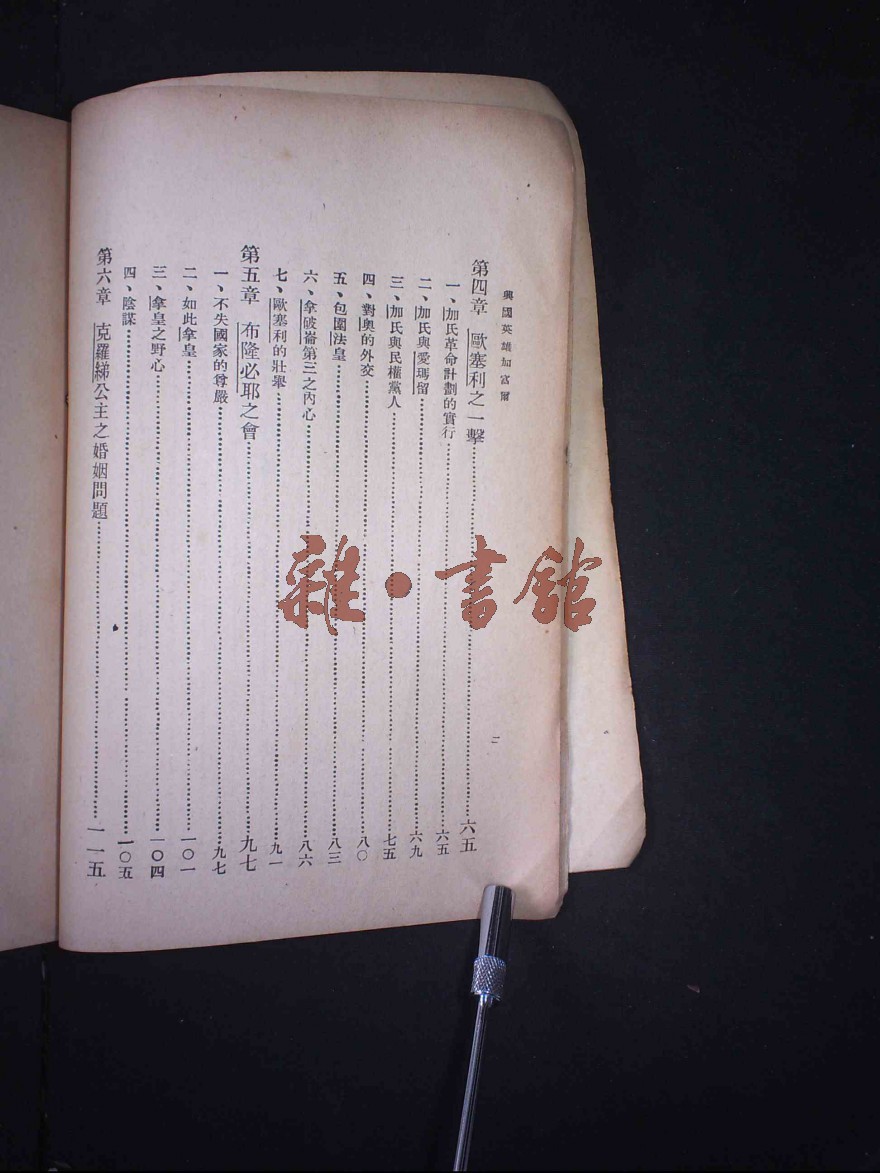 興國英雄加富爾
第四章　歐塞利之一擊……六五
一、加氏革命計劃的實行……六五
二、加氏與愛瑪留……六九
三、加氏與民權黨人……七五
四、對奧的外交……八〇
五、包圍法皇……八三
六、拿破崙第三之內心……八六
七、歐塞利的壯舉……九一
第五章　布隆必耶之會……九七
一、不失國家的尊嚴……九七
二、如此拿皇……一〇一
三、拿皇之野心……一〇四
四、陰謀……一〇五
第六章　克羅綈公主之婚姻問題……一一五
二
雜·書館